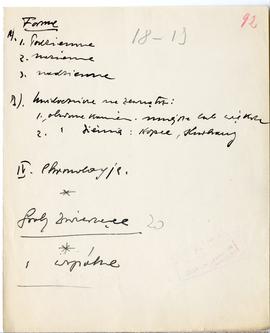 Formy
92
18-19
A). 1. Podziemne
2. naziemne
3. nadziemne
B). Uwidocznione na zewnątrz:
1. obwar. kamien. mniejsze lub większe
2. " ziemią: kopce, kurhany
IV. Chronologja.
Groby zwierzęce 20
1 wspólne